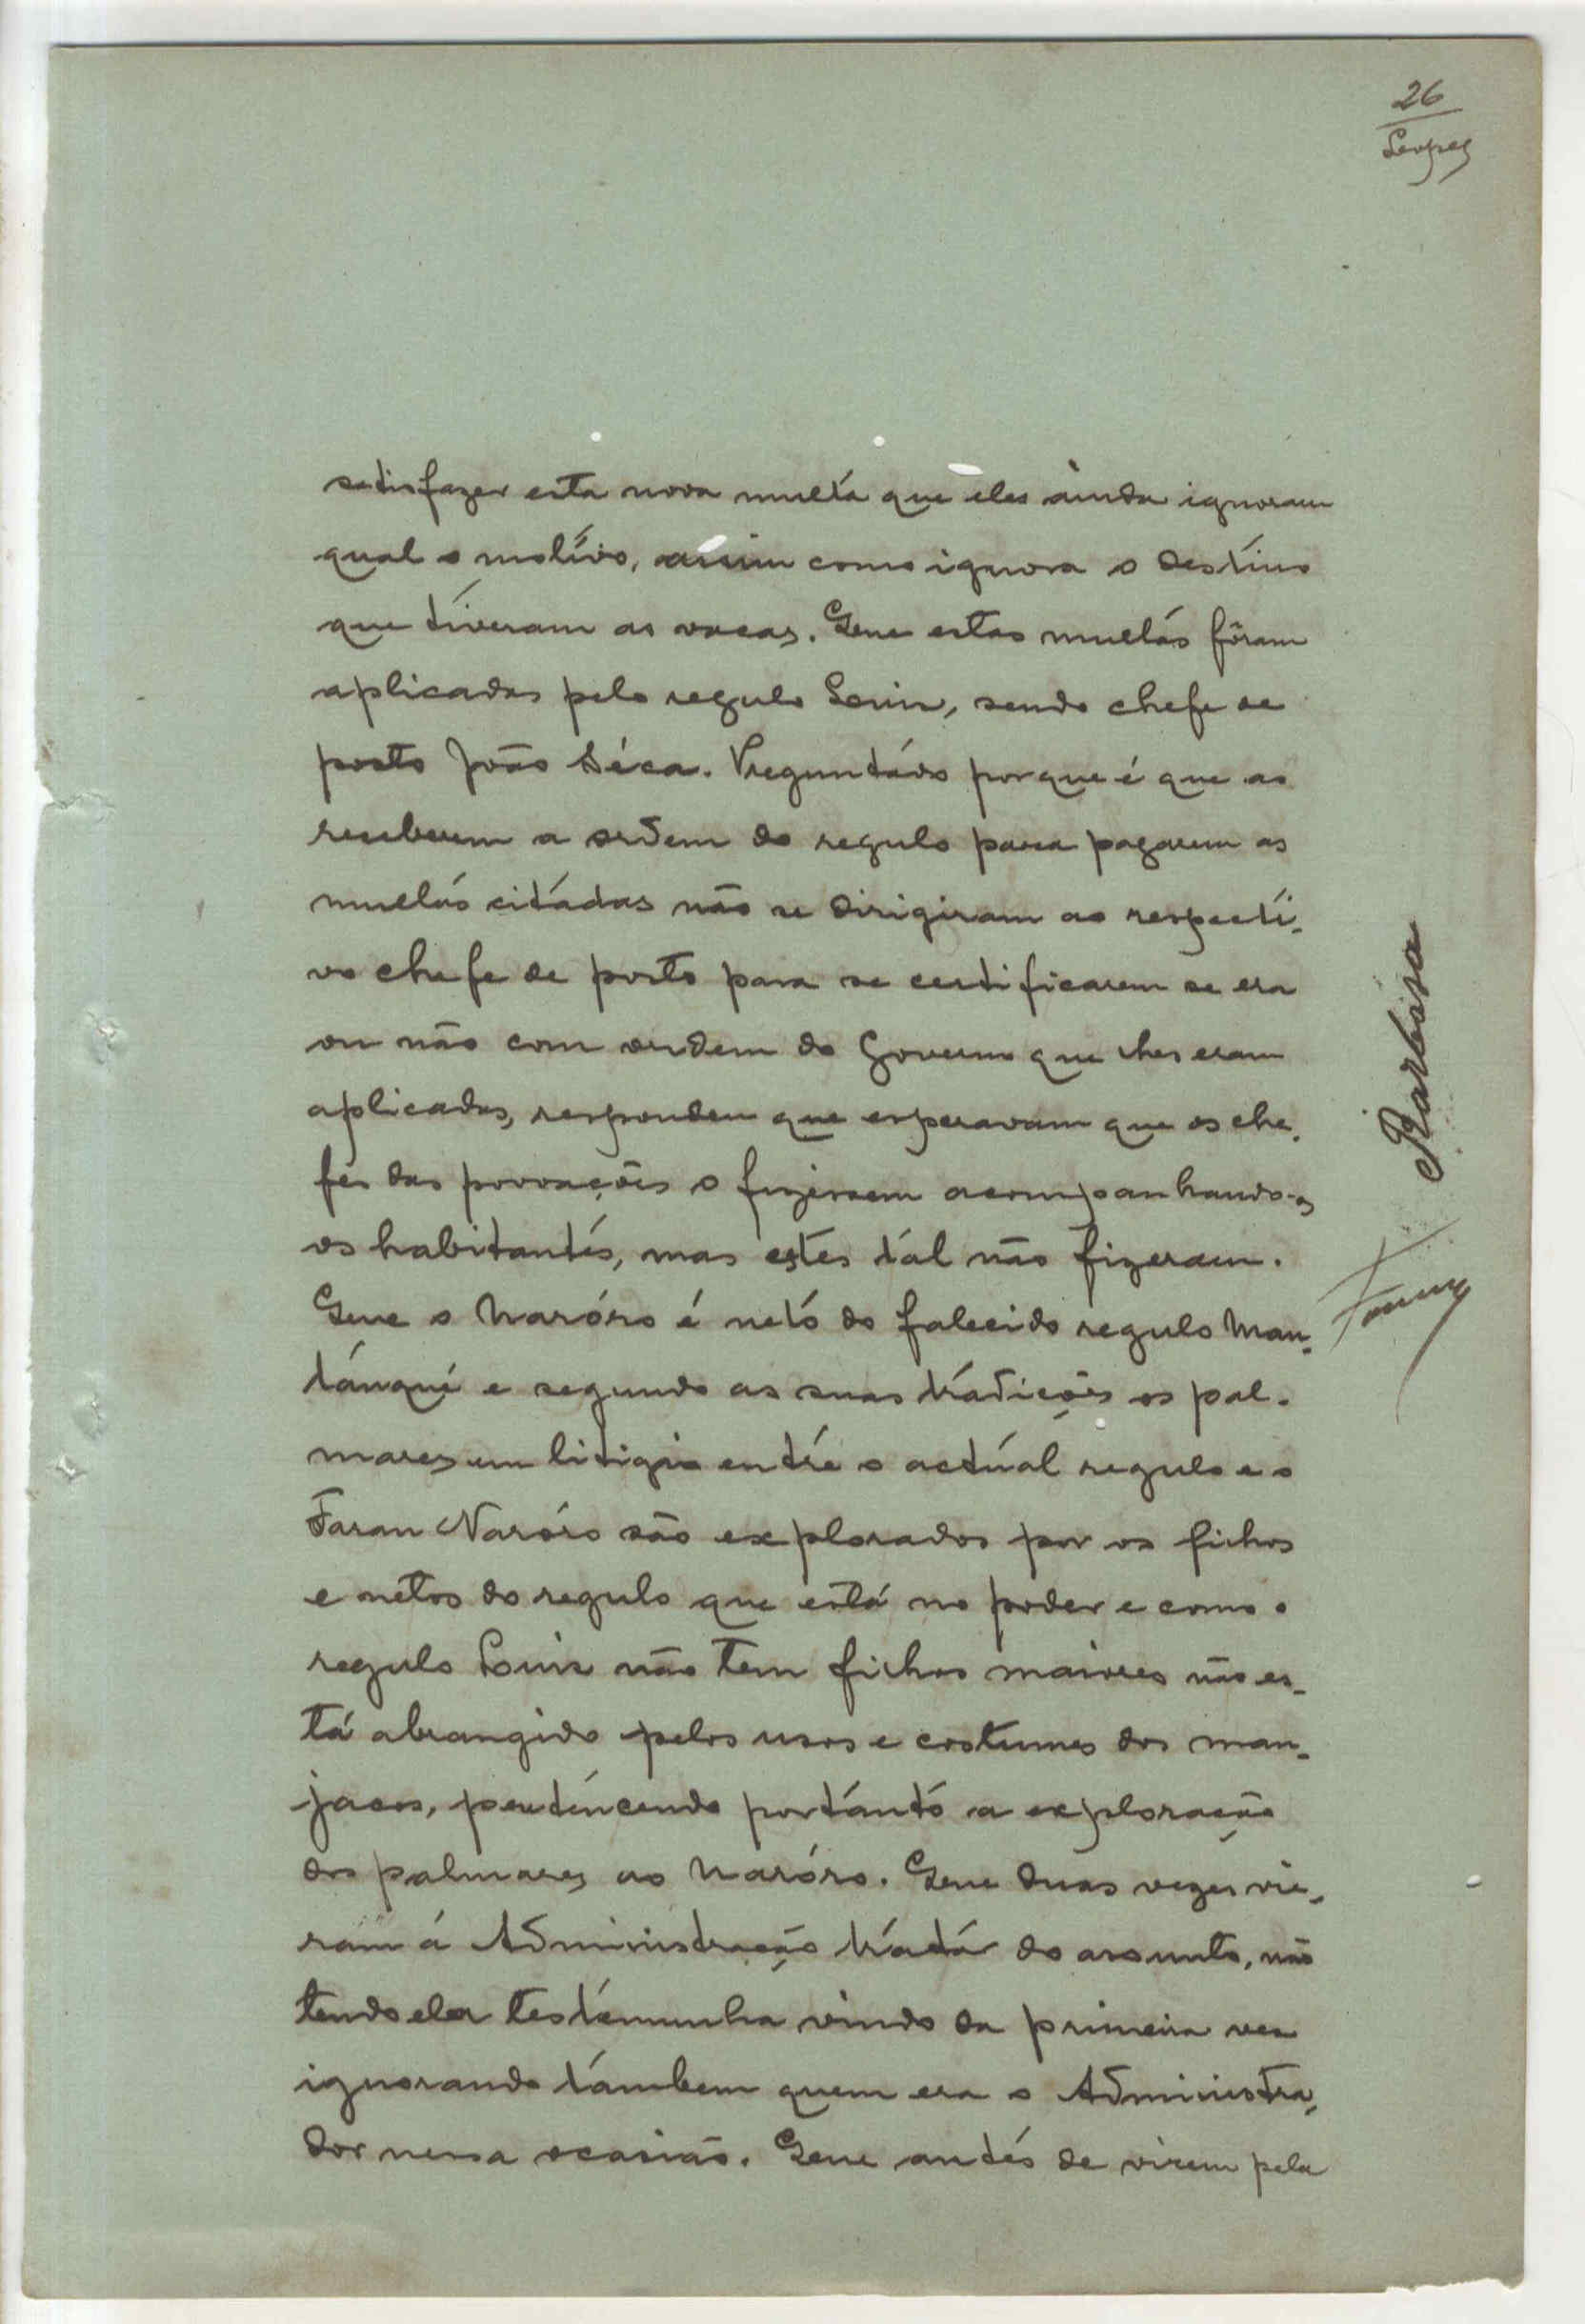 26
Lopes
satisfazer esta nova multa que eles ainda ignoram
qual o motivo, assim como ignora o destino
que tiveram as vacas. Que estas multas fôram
aplicadas pelo regulo Luis, sendo chefe de
posto João Séca. Preguntádo porque é que ao
receberem a ordem do regulo para pagarem as
multas citádas não se dirigiram ao respecti-
vo chefe de posto para se certificarem se era
ou não com ordem do Governo que lhes eram
aplicadas, respondeu que esperavam que os che-
fes das povoações o fizessem acompanhando-os
os habitantes, mas estes tal não fizeram.
Que o Naróro é neto do falecido régulo Man-
tánqué e segundo as suas tradições os pal-
mares em litigio entre o actúal regulo e o
Faran Naróro são explorados por os filhos
e netos do regulo que está no poder e como o
regulo Luis não tem filhos maiores não es-
tá abrangido pelos usos e costumes dos man-
jacos, pertencendo portanto a exploração
dos palmares ao Naróro. Que duas vezes vie-
ram á Administração tratár do assunto, não
tendo ela testemunha vindo da primeira vez
ignorando támbem quem era o Administra-
dor nessa ocasião. Que antés de virem pela
Barbosa